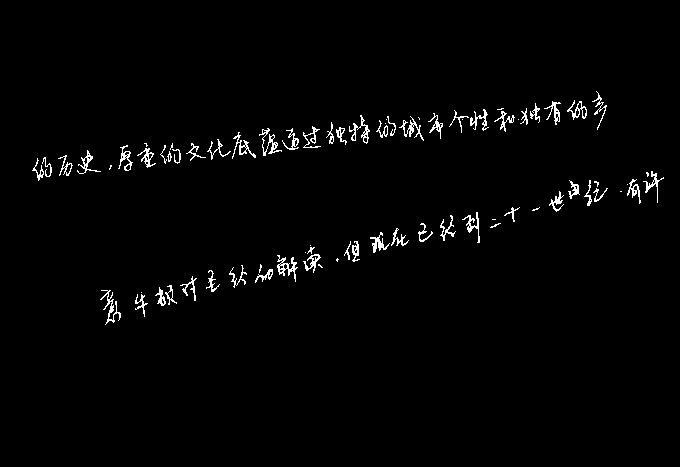 的历史,厚重的文化底蕴通过独特的城市个性和独有的
对圣经的解读,但现在已经到二十一世纪,有许